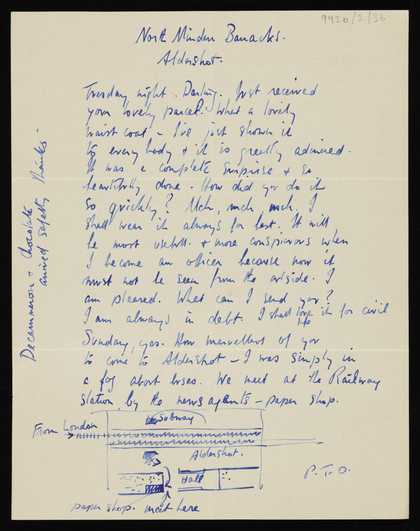 9920/2/36
North Minden Barracks.
Aldershot.
Tuesday night. Darling. Just received
your lovely parcel. What a lovely
waist coat – I've just shown it
to everybody & it is greatly admired.
It was a complete surprise & so
beautifully done. How did you do it
so quickly? Uch, uch, uch. I
shall wear it always for best. It will
be most useful & more conspicuous when
I become an officer because now it
must not be seen from the outside. I
am pleased. What can I send you?
I am always in debt. I shall love it for civil
life
Sunday, yes. How marvellous of you
to come to Aldershot – I was simply in
a fog about buses. We meet at the Railway
station, by the newsagents – paper shop.
Subway
From London
Aldershot.
Hall
paper shop. meet here
P.T.O.
Decammeron & Chocolate
arrived safely thanks –